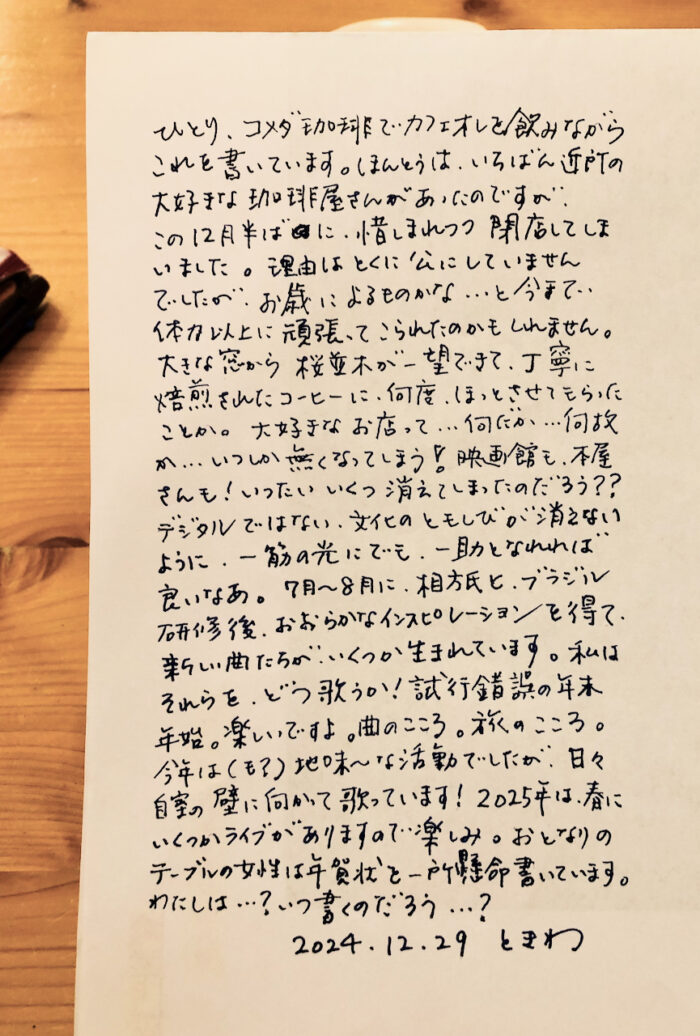 ひとり、コメダ珈琲でカフェオレを飲みながら
これを書いています。ほんとうは、いちばん近所の
大好きな珈琲屋さんがあったのですが、
この12月半ばに、惜しまれつつ閉店してしま
いました。理由はとくに公にしていません
でしたが、お歳によるものかな…と今まで、
体力以上に頑張ってこられたのかもしれません。
大きな窓から桜並木が一望できて、丁寧に
焙煎されたコーヒーに、何度、ほっとさせてもらった
ことか。大好きなお店って…何だか…何故
か…いつしか無くなってしまう!!映画館も、本屋
さんも!いったいいくつ消えてしまったのだろう??
デジタルではない、文化のともしびが消えない
ように、一筋の光にでも、一助となれれば
良いなあ。7月〜8月に、相方氏と、ブラジル
研修後、おおらかなインスピレーションを得て、
新しい曲たちが、いくつか生まれています。私は
それらを、どう歌うか!試行錯誤の年末
年始。楽しいですよ。曲のこころ。旅のこころ。
今年は(も?)地味〜な活動でしたが、日々
自室の壁に向かって歌っています!2025年は、春に
いくつかライブがありますので楽しみ。おとなりの
テーブルの女性は年賀状を一所懸命書いています。
わたしは…?いつ書くのだろう…?
2024.12.29 ときわ